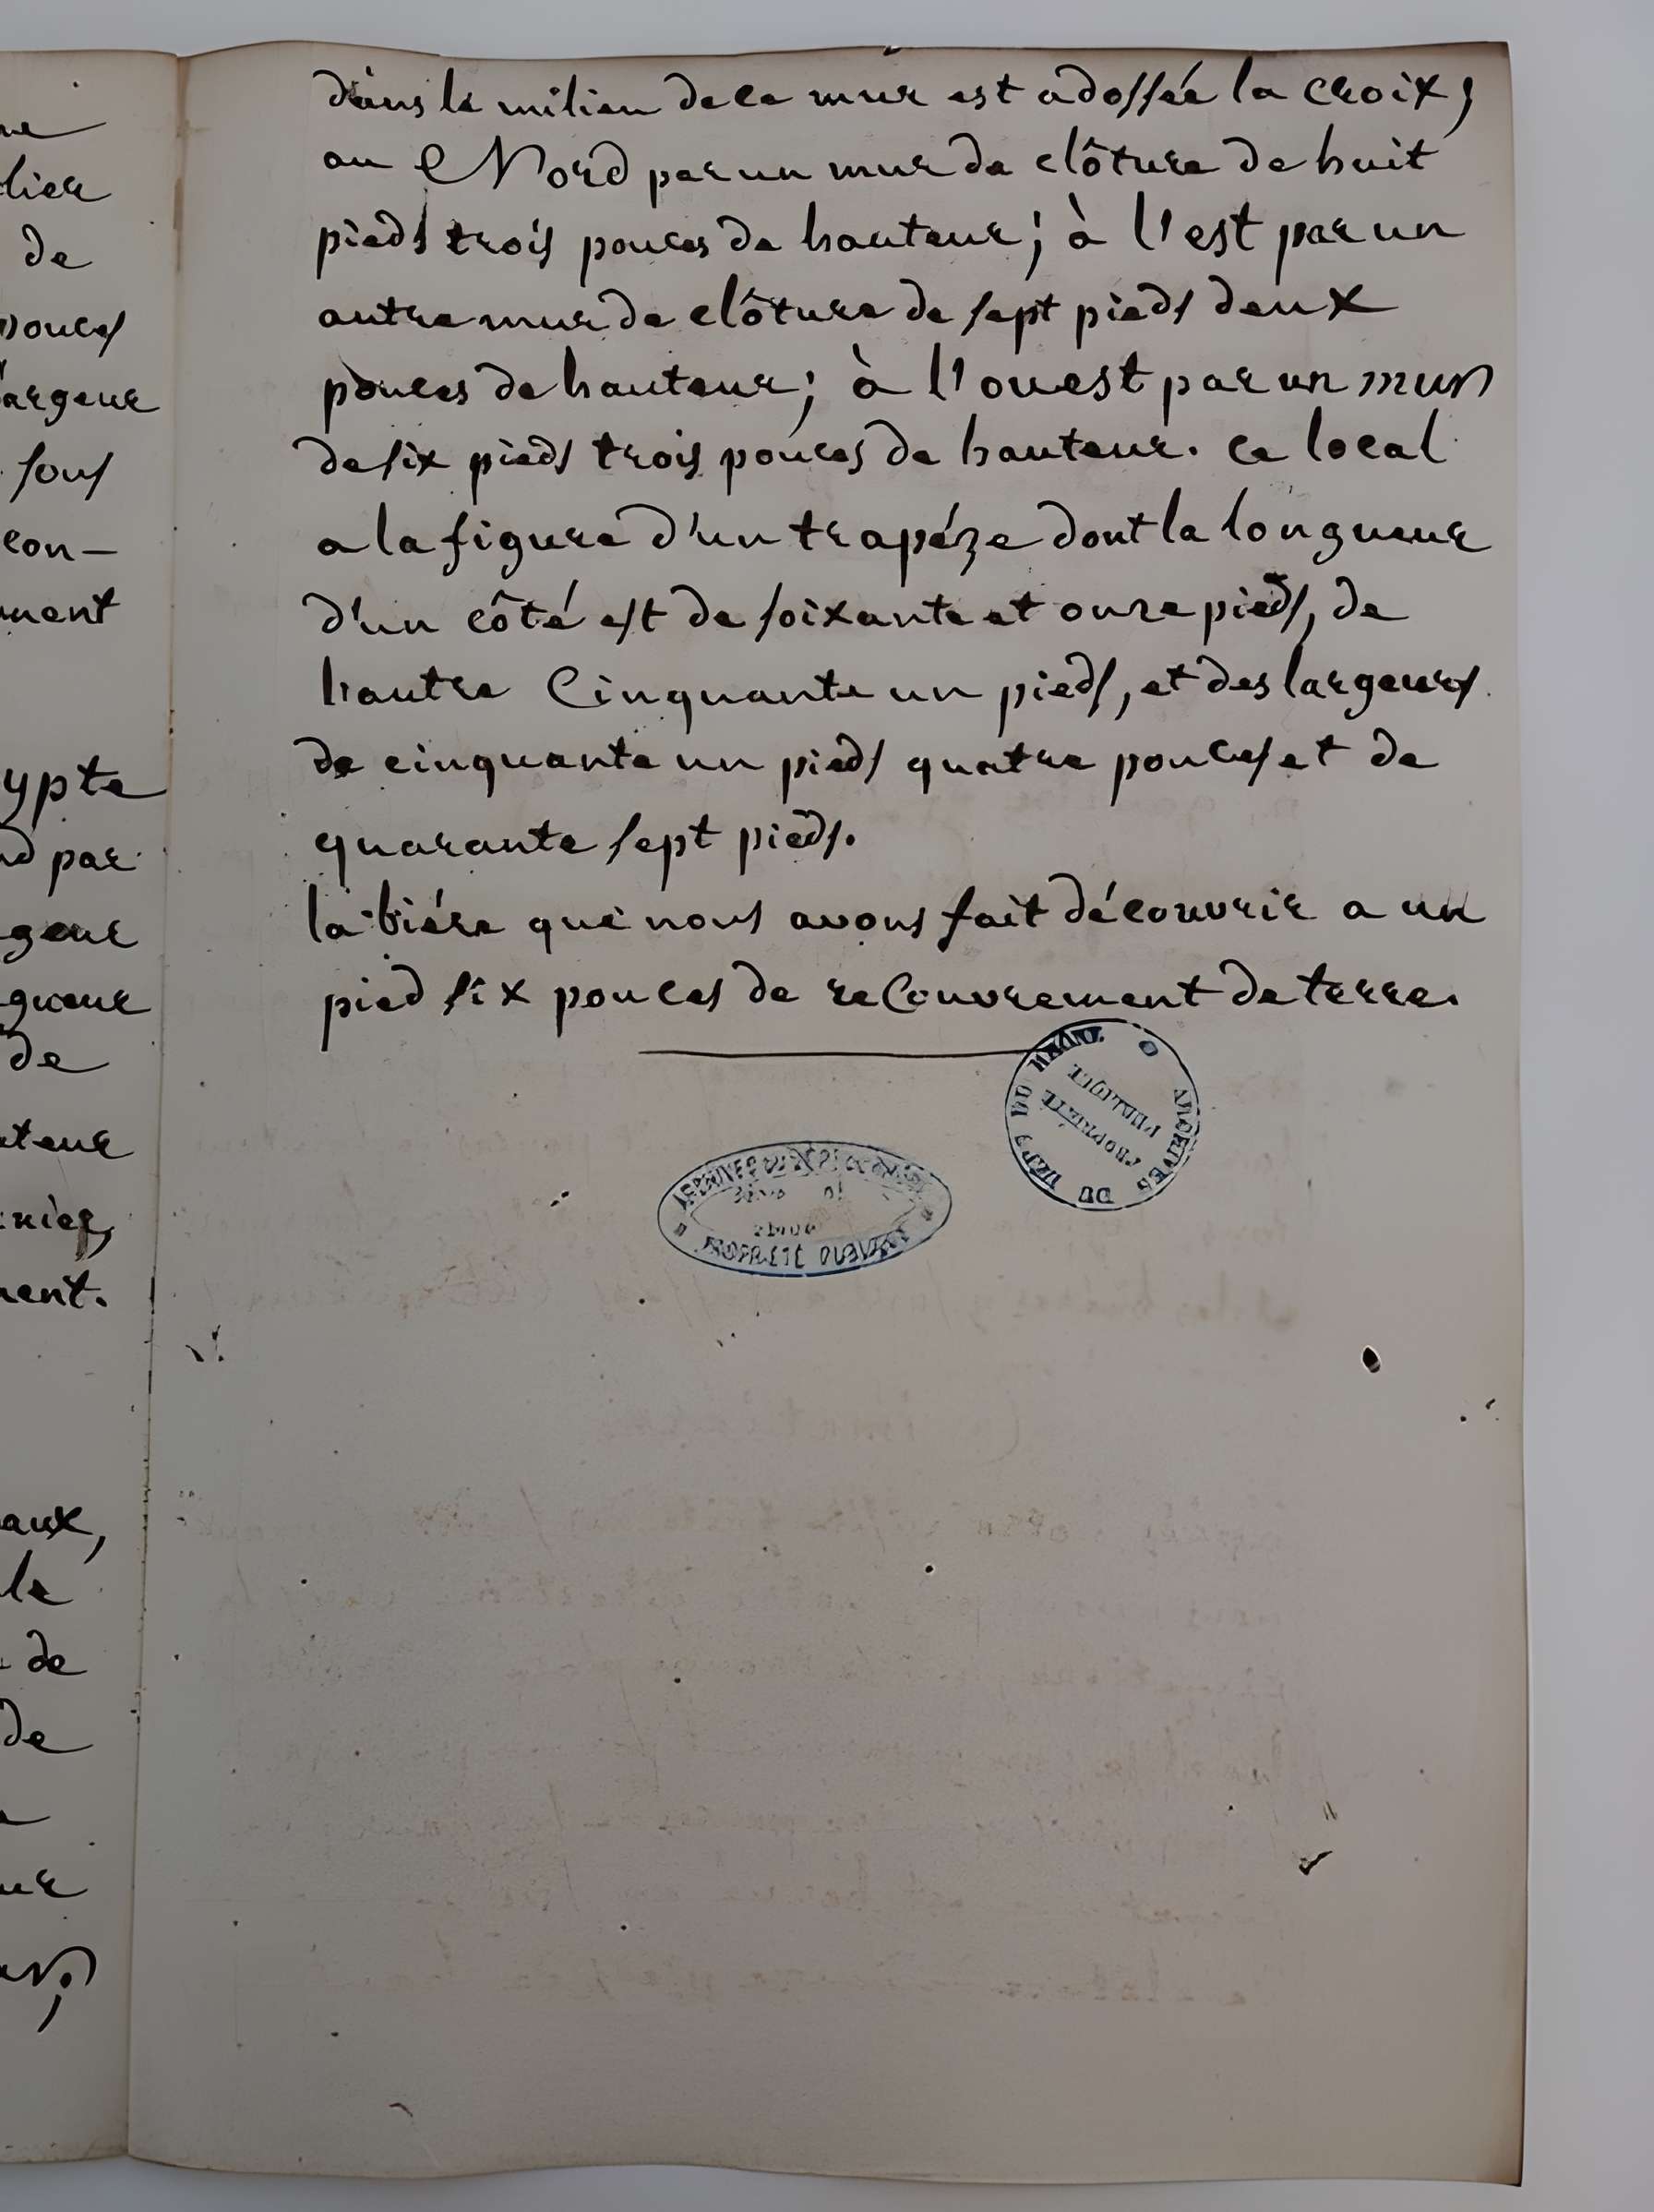 ne
lier
de
pouces
argeur
sous
con-
ment
ypte
nd par
geur
gueur
de
uteur
nier,
ment.
aux,
le
de
de
ur
dans le milieu de ce mur est adossée la croix;
au Nord par un mur de clôture de huit
pieds trois pouces de hauteur; à l'est par un
autre mur de clôture de sept pieds deux
pouces de hauteur; à l'ouest par un mur
de six pieds trois pouces de hauteur. Ce local
a la figure d'un trapéze dont la longueur
d'un côté est de soixante et onze pieds, de
l'autre Cinquante un pieds, et des largeurs
de cinquante un pieds quatre pouces et de
quarante sept pieds.
la biére que nous avons fait découvrir a un
pied six pouces de recouvrement de terre.
ARCHIVES DU DÉPT DU RHÔNE
PROPRIÉTÉ
PUBLIQUE
PROPRIÉTÉ PUBLIQUE